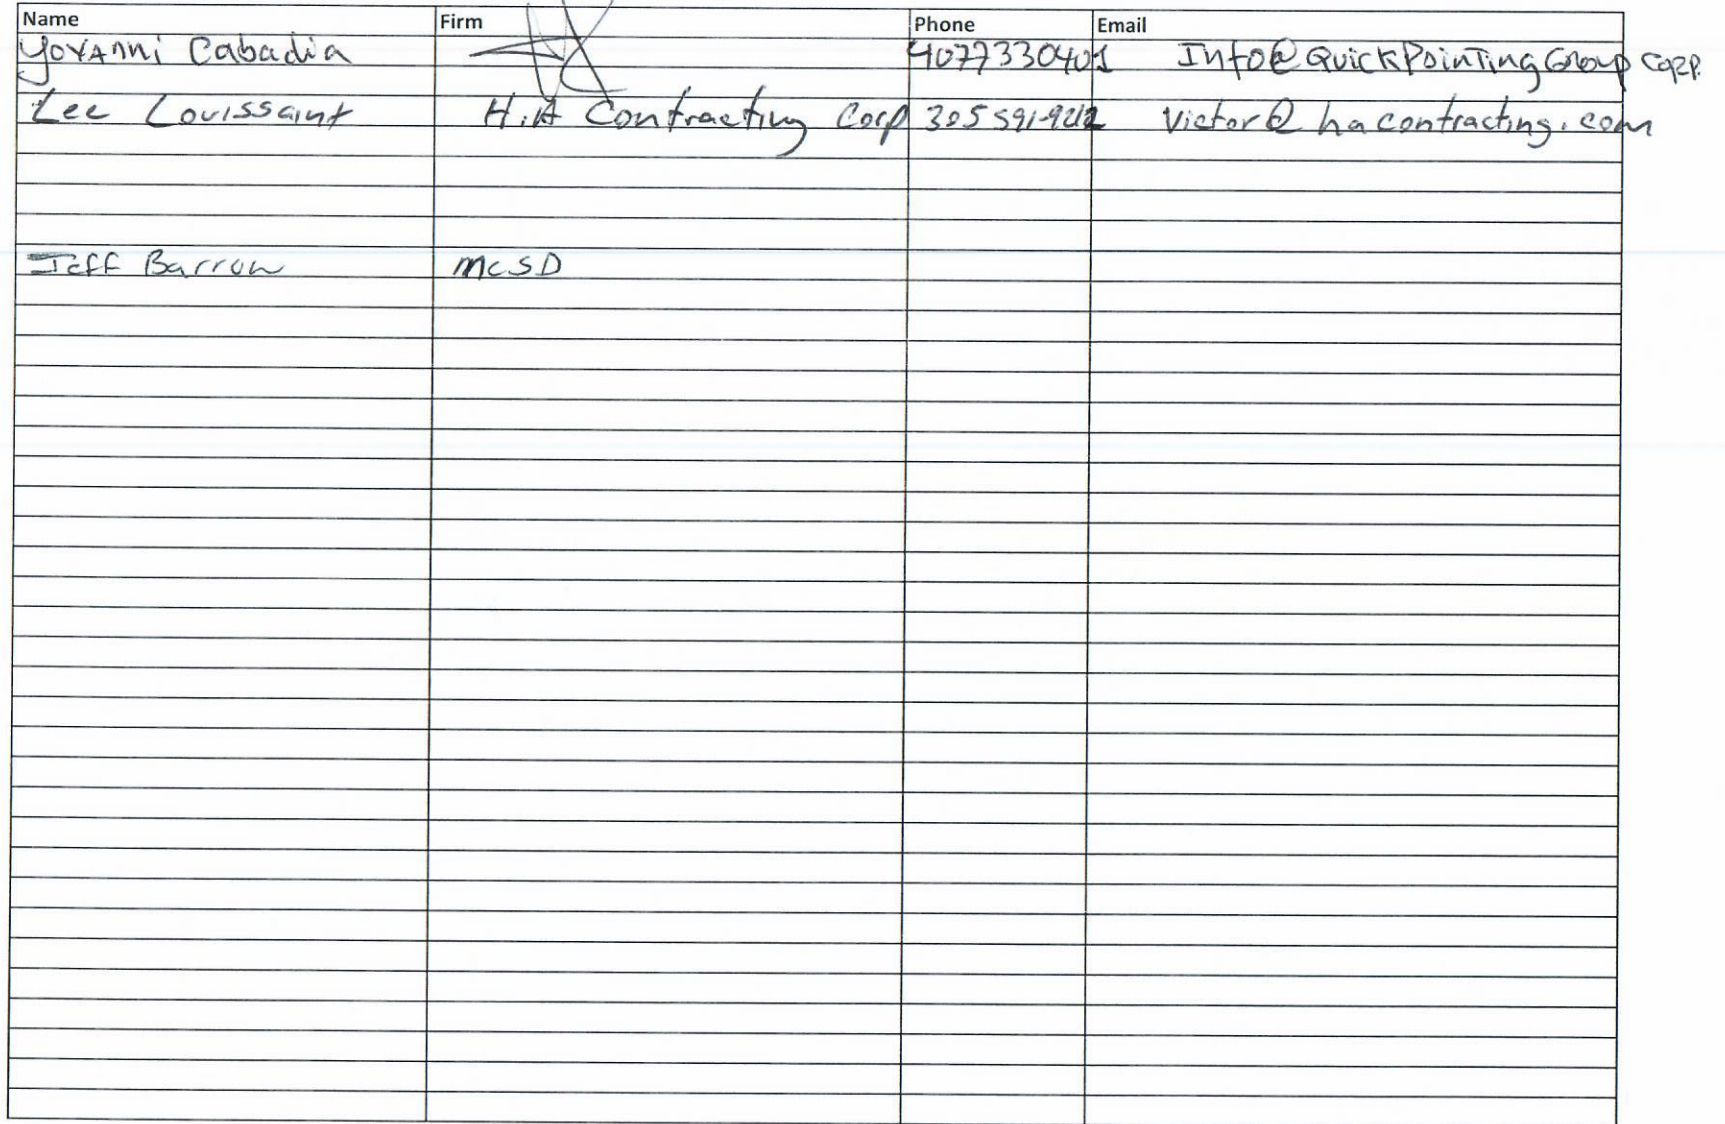 Name Firm Phone Email
Yovanni Cabadia 4077330401 Info@QuickPointingGroup Corp.
Lee Louissaint H.A Contracting Corp 305 591-9212 Victor@hacontracting.com
Jeff Barrow MCSD